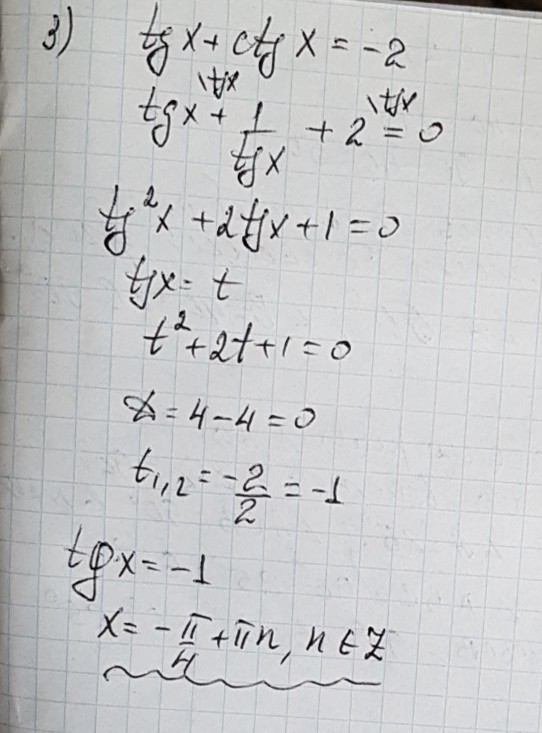 3) tg x + ctg x = -2
tg x \tgx + 1/tg x + 2 \tgx = 0
tg²x + 2tgx + 1 = 0
tgx = t
t² + 2t + 1 = 0
D = 4 - 4 = 0
t₁,₂ = -2/2 = -1
tg x = -1
x = -π/4 + πn, n ∈ Z